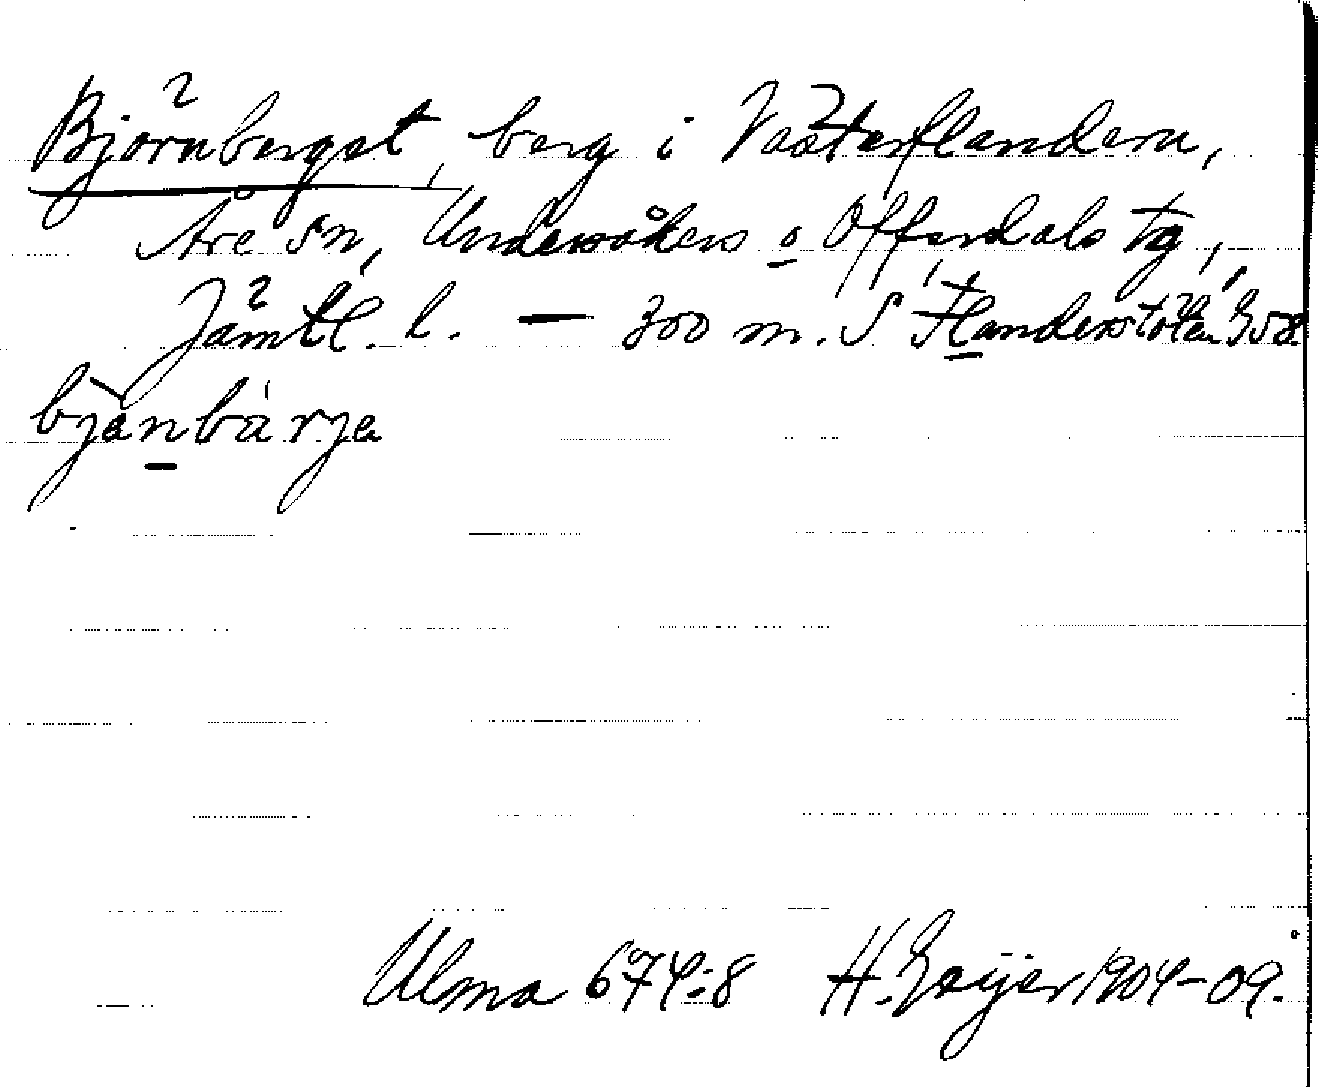 Björnberget, berg i Västerflandern,
Åre sn, Undersåkers o Offerdals tg,
Jämtl. l. — 300 m. S Flanderstöten 958.
bjanbàrja
Ulma 674:8 H. Geijer 1904-09.